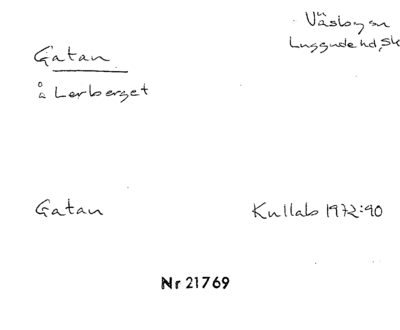 Väsby sn
Luggude hd, Sk
Gatan
å Lerberget
Gatan
Kullab 1972:90
Nr 21769